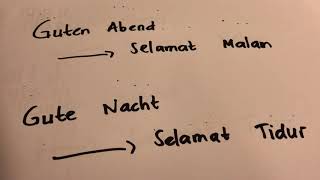 Guten Abend
Selamat Malam
Gute Nacht
Selamat Tidur